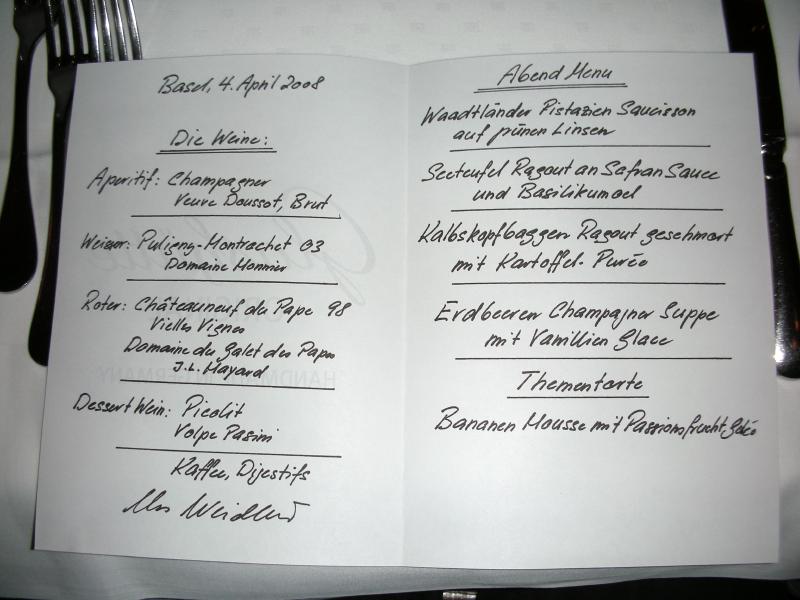 Basel, 4. April 2008
Die Weine:
Aperitif: Champagner
Veuve Doussot, Brut
Weisser: Puligny-Montrachet 03
Domaine Monnier
Roter: Châteauneuf du Pape 98
Vielles Vignes
Domaine du Galet des Papes
J.L. Mayard
Dessert Wein: Picolit
Volpe Pasini
Kaffee, Digestifs
Abend Menu
Waadtländer Pistazien Saucisson
auf grünen Linsen
Seeteufel Ragout an Safran Sauce
und Basilikumoel
Kalbskopfbaggen Ragout geschmort
mit Kartoffel-Purée
Erdbeeren Champagner Suppe
mit Vanillien Glace
Thementorte
Bananen Mousse mit Passionsfrucht Gelée